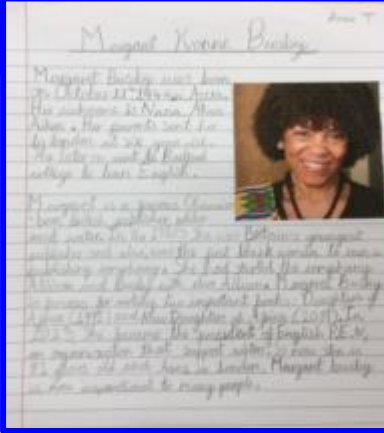 Anna T
Margaret Yvonne Busby
Margaret Busby was born
on October 1944 in Accra.
Her nickname is Nana Akua
Her parents sent her
to London at six years old.
She later on went to Bedford
college to learn English.
Margaret is a famous Ghanaian
- born British publisher, editor
and writer. In the 1960's she was Britain's youngest
publisher and also was the first black woman to own a
publishing company. She had started the company
Allison and Busby with Clive Allison. Margaret Busby
is famous for writing two important books: Daughters of
Africa (1992) and New Daughters of Africa (2019). In
2023 she became the president of English P.E.N,
an organisation that support writers. So now she is
years old and lives in London. Margaret Busby
is an inspirational to many people.